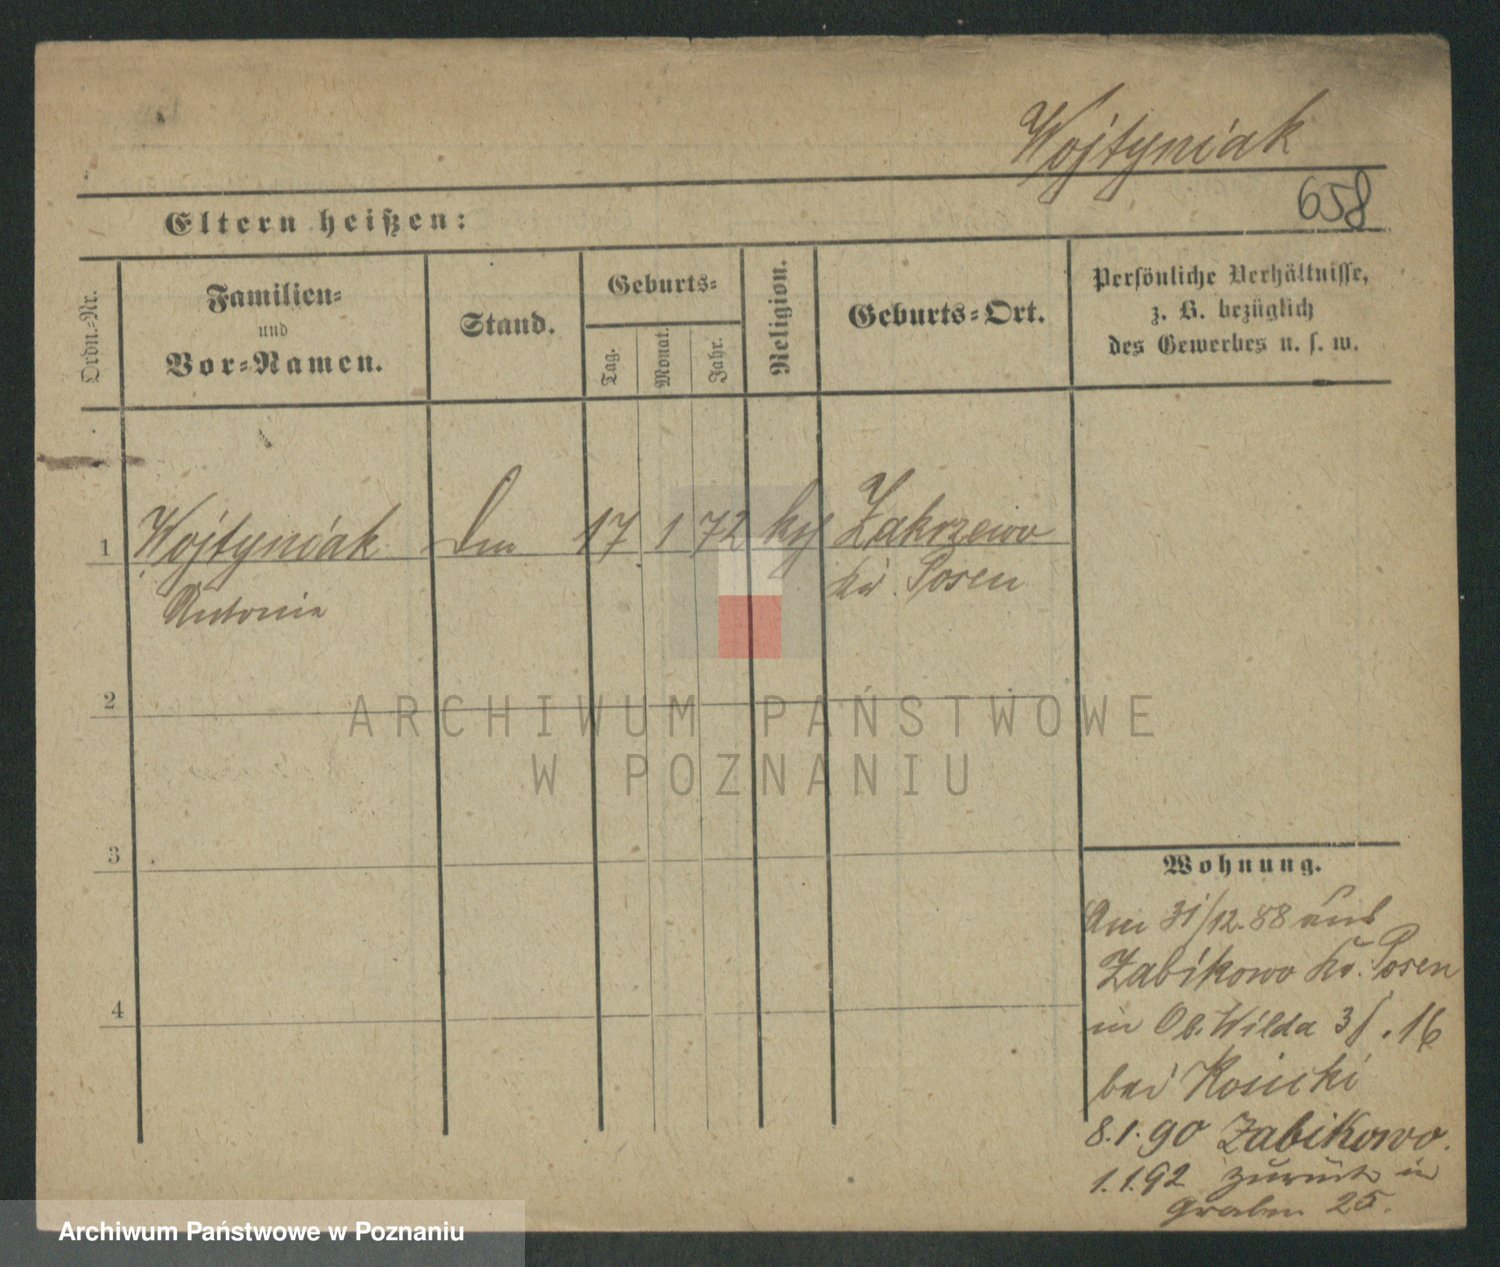 Wojtyniak
658
Eltern heißen:
Ordn.-Nr.
Familien-
und
Vor-Namen.
Stand.
Geburts-
Tag.
Monat.
Jahr.
Religion.
Geburts-Ort.
Persönliche Verhältnisse,
z. B. bezüglich
des Gewerbes u. s. w.
1 Wojtyniak 17 1 72 Zakrzewo
Antonie Posen
2
3
4
ARCHIWUM PAŃSTWOWE
W POZNANIU
Wohnung.
Am 31/12. 88 aus
Zabikowo Kr. Posen
in Ob. Wilda 16
bei Kosicki
8.1.90 Zabikowo.
1.1.92 zurück in
Graben 25.
Archiwum Państwowe w Poznaniu